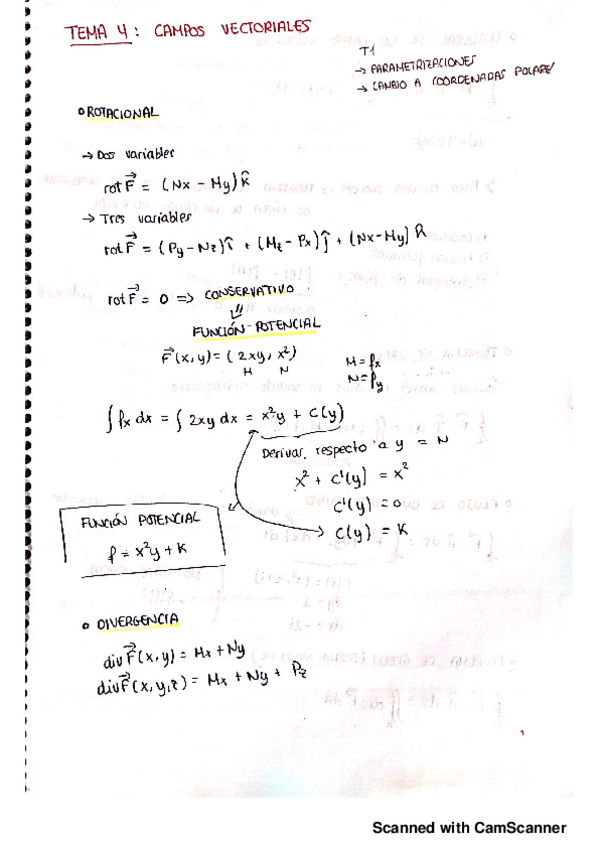 TEMA 4: CAMPOS VECTORIALES
T1
→ PARAMETRIZACIONES
→ CAMBIO A COORDENADAS POLARES
ROTACIONAL
→ Dos variables
rot F⃗ = (Nx - My) k̂
→ Tres variables
rot F⃗ = (Py - Nz) î + (Mz - Px) ĵ + (Nx - My] k̂
rot F⃗ = 0 => CONSERVATIVO
⇓
FUNCIÓN POTENCIAL
F⃗(x,y) = (2xy, x²)
M N
M = fx
N = fy
∫ fx dx = ∫ 2xy dx = x²y + C(y)
Derivar respecto a y = N
x² + C'(y) = x²
C'(y) = 0
→ C(y) = K
FUNCIÓN POTENCIAL
f = x²y + K
DIVERGENCIA
div F⃗(x,y) = Mx + Ny
div F⃗(x,y,z) = Mx + Ny + Pz
Scanned with CamScanner